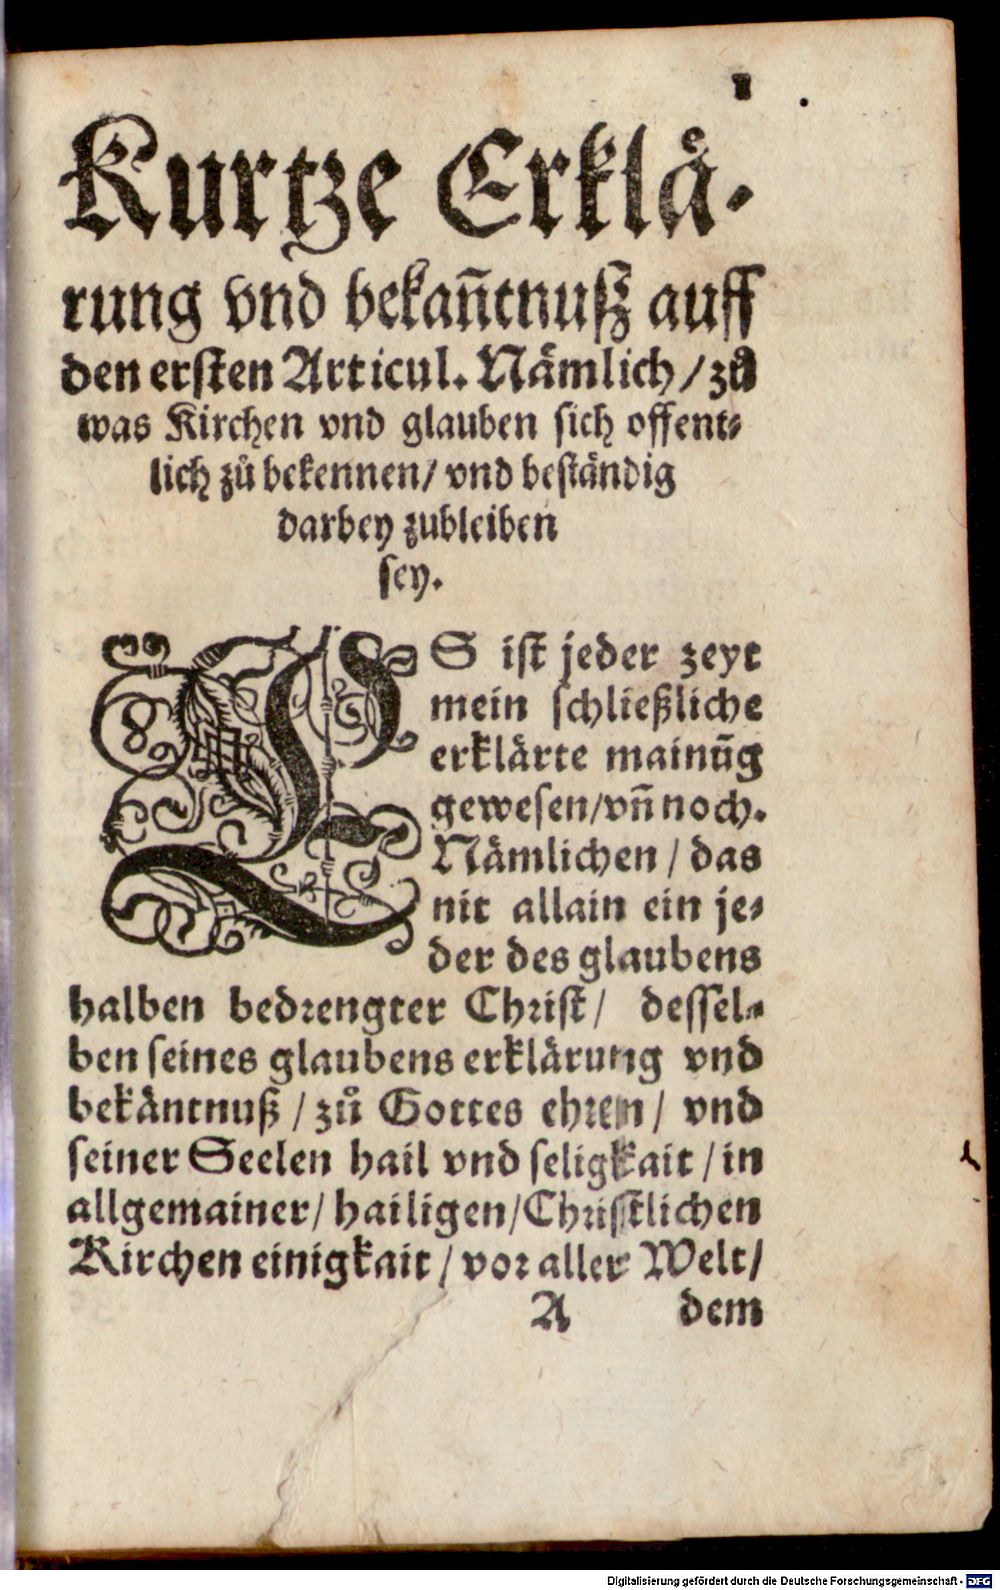 1
Kurtze Erklaͤ-
rung vnd bekañtnuſz auff
den erſten Articul. Naͤmlich / zů
was Kirchen vnd glauben ſich offent-
lich zů bekennen / vnd beſtaͤndig
darbey zubleiben
ſey.
ES iſt jeder zeyt
mein ſchließliche
erklaͤrte mainūg
gewesen / vñ noch.
Naͤmlichen / das
nit allain ein je-
der des glaubens
halben bedrengter Chriſt / deſſel-
ben ſeines glaubens erklaͤrung vnd
bekaͤntnuß / zů Gottes ehren / vnd
ſeiner Seelen hail vnd ſeligkait / in
allgemainer / hailigen / Chriſtlichen
Kirchen einigkait / vor aller Welt /
A dem
Digitalisierung gefördert durch die Deutsche Forschungsgemeinschaft - DFG